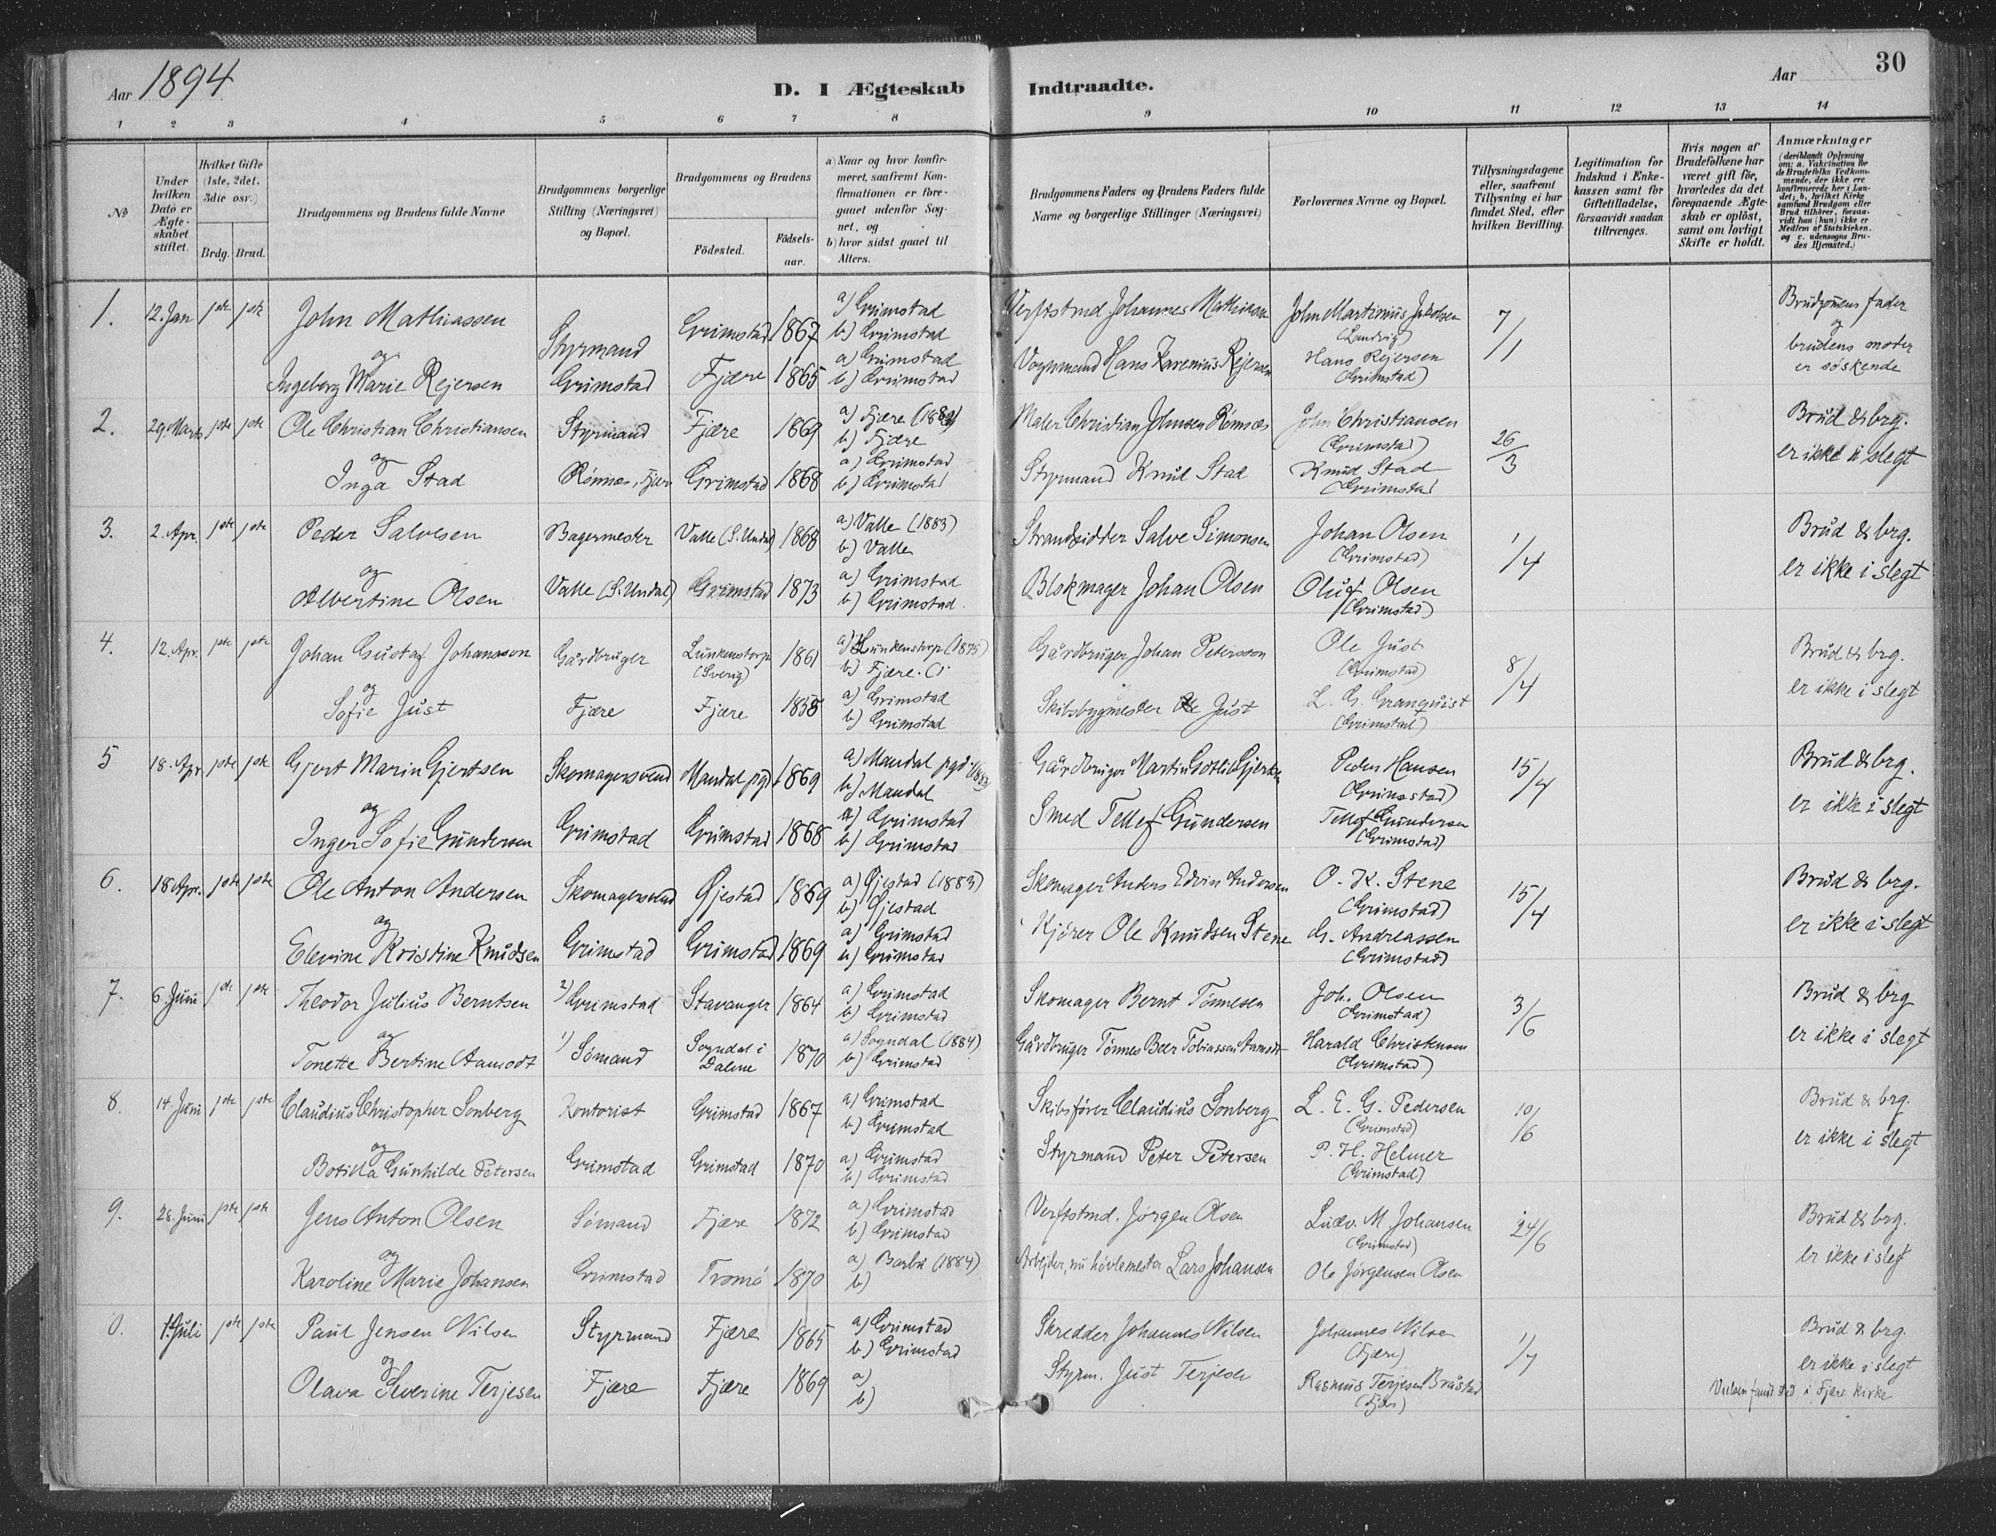 Aar 1894
D. I Ægteskab Indtraadte.
Aar
30
1 2 3 4 5 6 7 8 9 10 11 12 13 14
No
Under hvilken Dato er Ægteskabet stiftet.
Hvilket Gifte (1ste, 2det, 3die osv.)
Brdg. Brud.
Brudgommens og Brudens fulde Navne
Brudgommens borgerlige Stilling (Næringsvei) og Bopæl.
Brudgommens og Brudens
Födested.
Födselsaar.
a) Naar og hvor konfirmeret, saafremt Konfirmationen er foregaaet udenfor Sognet, og
b) hvor sidst gaaet til Alters.
Brudgommens Faders og Brudens Faders fulde Navne og borgerlige Stillinger (Næringsvei)
Forlovernes Navne og Bopæl.
Tillysningsdagene eller, saafremt Tillysning ei har fundet Sted, efter hvilken Bevilling.
Legitimation for Indskud i Enkekassen samt for Giftetilladelse, forsaavidt saadan tiltrænges.
Hvis nogen af Brudefolkene har været gift för, hvorledes da det foregaaende Ægteskab er oplöst, samt om lovligt Skifte er holdt.
Anmærkninger (deriblandt Oplysning om: a. Vakcination for de Brudefolks Vedkommende, der ikke ere konfirmerede her i Landet; b. hvilket Kirkesamfund Brudgom eller Brud tilhörer, forsaavidt han (hun) ikke er Medlem af Statskirken. og c. udensogns Brudes Hjemsted.)
1. 12. Jan 1ste 1ste John Mathiassen Styrmand Grimstad 1867 a) Grimstad b) Grimstad Verftstmd Johannes Mathiassen John Martinius Jakobsen (Landvig) 7/1 Brudgomens fader og
og Ingeborg Marie Rejersen Grimstad Fjære 1865 a) Grimstad b) Grimstad Vognmand Hans Karenius Rejersen Hans Rejersen (Grimstad) brudens moder er søskende
2. 29. Marts 1ste 1ste Ole Christian Christiansen Styrmand Fjære 1869 a) Fjære b) Fjære Maler Christian Johnsen Rønnes John Christiansen (Grimstad) 26/3 Brud & brg.
og Inga Stad Rønnes, Fjære Grimstad 1868 a) Grimstad b) Grimstad Styrmand Knud Stad Knud Stad (Grimstad) er ikke i slegt
3. 2. Apr. 1ste 1ste Peder Salvesen Bagermester Valle (S. Undal) 1868 a) Valle (1883) b) Valle Strandsidder Salve Simonsen Johan Olsen (Grimstad) 1/4 Brud & brg.
og Albertine Olsen Valle (S. Undal) Grimstad 1873 a) Grimstad b) Grimstad. Blokmager Johan Olsen Oluf Olsen (Grimstad) er ikke i slegt
4. 12. Apr. 1ste 1ste Johan Gustaf Johansson Gårdbruger Lunkenstorp (Sverig) 1861 a) Lunkenstorp (1875) b) Fjære. Gårdbruger Johan Petersson Ole Just (Grimstad) 8/4 Brud & brg.
og Sofie Just Fjære Fjære 1858 a) Grimstad b) Grimstad Skibsbygmester Ole Just L. G. Granquist (Grimstad) er ikke i slegt
5 18. Apr 1ste 1ste Gjert Marin Gjertsen Skomagersvend Mandal pgd 1869 a) Mandal pgd. b) Mandal Gårdbruger Martin Gotlib Gjertsen Peder Hansen (Grimstad) 15/4 Brud & brg.
og Inger Sofie Gundersen Grimstad Grimstad 1868 a) Grimstad b) Grimstad Smed Tellef Gundersen Tellef Gundersen (Grimstad) er ikke i slegt
6. 18 Apr. 1ste 1ste Ole Anton Andersen Skomagersvend Øjestad 1869 a) Øjestad (1883) b) Øjestad Skomager Anders Edvin Andersen O. K. Stene (Grimstad) 15/4 Brud & brg.
og Elevine Kristine Knudsen Grimstad Grimstad 1869 a) Grimstad b) Grimstad Kjører Ole Knudsen Stene G. Andreassen (Grimstad) er ikke i slegt
7. 6. Juni 1ste 1ste Theodor Julius Berntsen 2) Grimstad Stavanger 1864 a) Grimstad b) Grimstad Skomager Bernt Tønnesen Joh. Olsen (Grimstad) 3/6 Brud & brg
og Tonette Bertine Aamodt 1) Sømand Sogndal i Dalene 1870 a) Sogndal (1884) b) Grimstad Gårdbruger Tønnes Beer Tobiassen Aamodt Harald Christensen (Grimstad) er ikke i slegt
8. 14. Juni 1ste 1ste Claudius Christopher Sonberg Kontorist Grimstad 1867 a) Grimstad b) Grimstad Skibsfører Claudius Sonberg L. E. G. Pedersen (Grimstad) 10/6 Brud & brg.
og Botilda Gunhilde Petersen Grimstad Grimstad 1870 a) Grimstad b) Grimstad Styrmand Peter Petersen P. H. Helmer (Grimstad) er ikke i slegt
9. 28. Juni 1ste 1ste Jens Anton Olsen Sømand Fjære 1872 a) Grimstad b) Grimstad Verftstmd. Jørgen Olsen Ludv. M. Johansen (Grimstad) 24/6 Brud & brg.
og Karoline Marie Johansen Grimstad Tromø 1870 a) Barbu (1884) b) Arbejder, nu høvlemester Lars Johansen Ole Jørgensen Olsen er ikke i slegt
0. 1. Juli 1ste 1ste Paul Jensen Nilsen Styrmand Fjære 1865 a) Grimstad b) Grimstad Skredder Johannes Nilsen Johannes Nilsen (Fjære) 1/7 Brud & brg.
og Olava Severine Terjesen Fjære Fjære 1869 a) b) Styrm. Just Terjesen Rasmus Terjesen Bråstad (Fjære) er ikke i slegt
Vielsen fandt sted i Fjære kirke